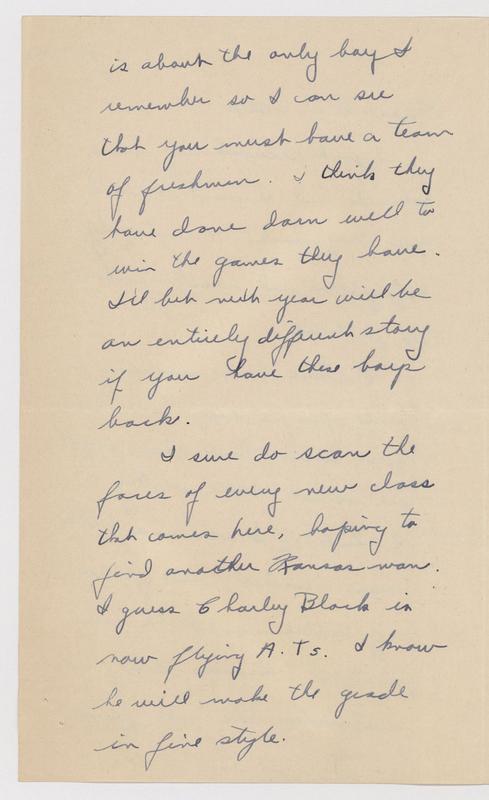 is about the only boy I
remember so I can see
that you must have a team
of freshmen. I think they
have done darn well to
win the games they have.
I'll bet next year will be
an entirely different story
if you have these boys
back.
I sure do scan the
faces of every new class
that comes here, hoping to
find another Kansas man.
I guess Charley Black is
now flying A.Ts. I know
he will make the grade
in fine style.